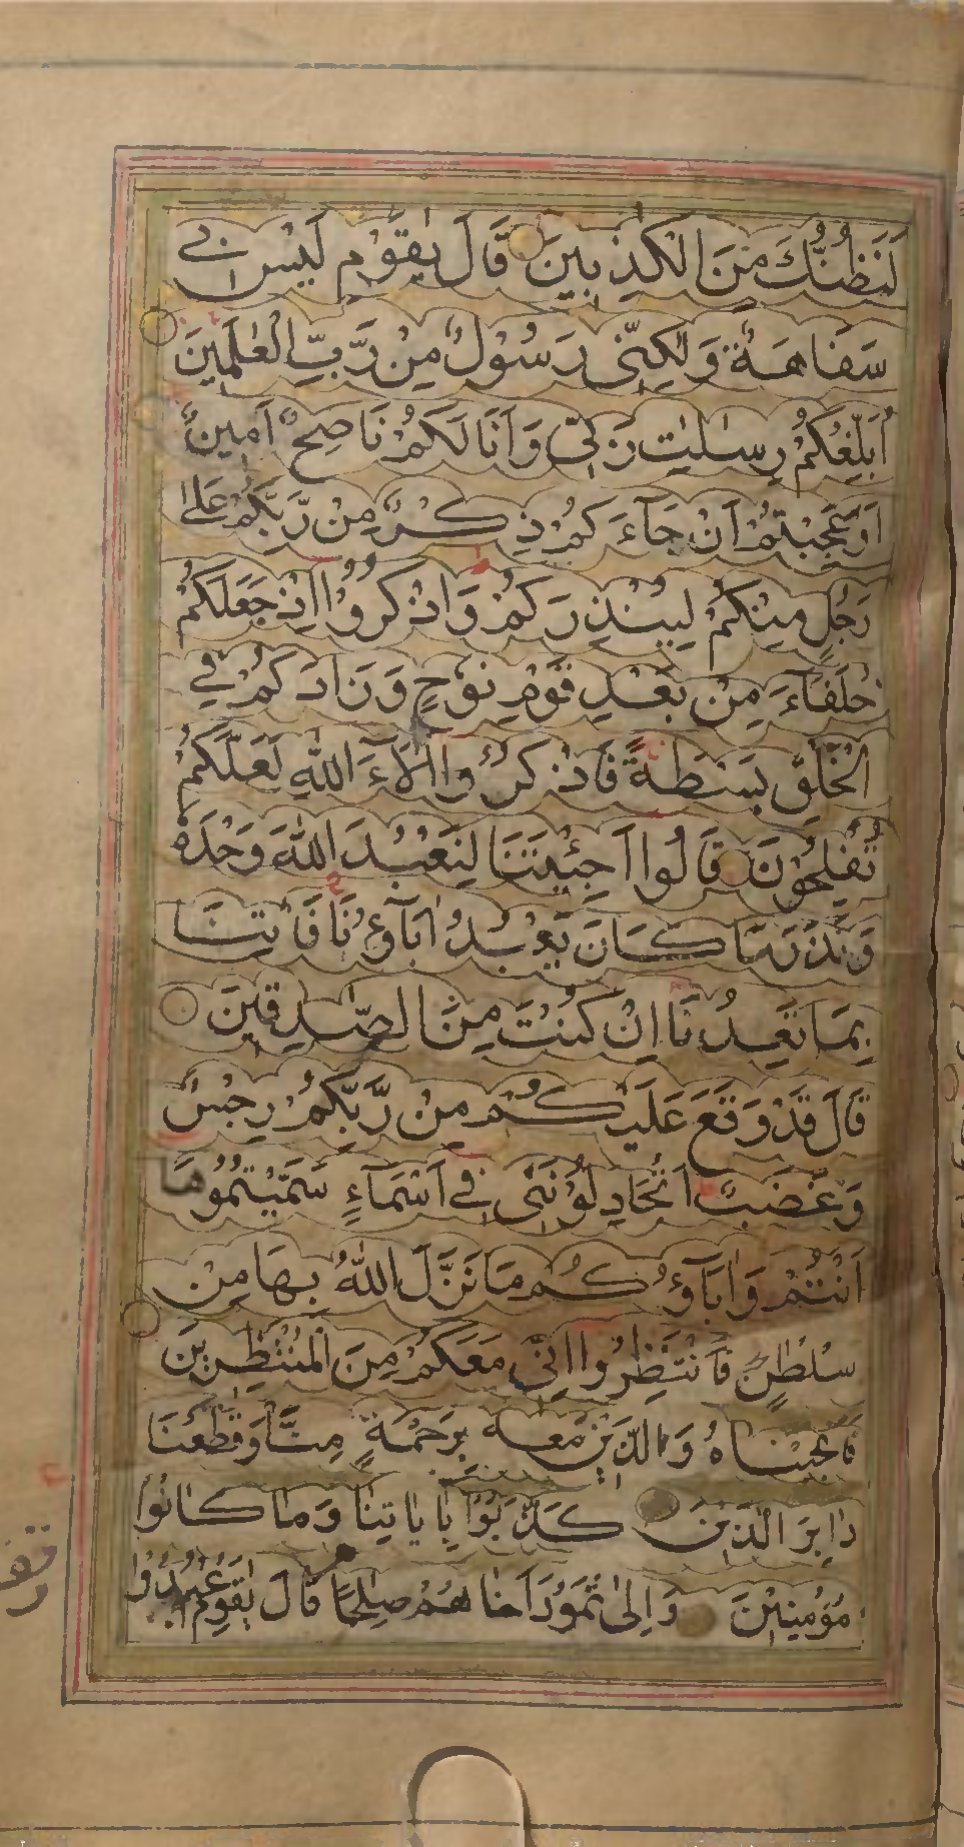 لَنَظُنُّكَ مِنَ الْكٰذِبِينَ قَالَ يٰقَوْمِ لَيْسَ بِي
سَفَاهَةٌ وَلٰكِنِّى رَسُوْلٌ مِنْ رَّبِّ الْعٰلَمِينَ
اُبَلِّغُكُمْ رِسٰلٰتِ رَبِّى وَاَنَا لَكُمْ نَاصِحٌ اَمِينٌ
اَوَعَجِبْتُمْ اَنْ جَآءَكُمْ ذِكْرٌ مِنْ رَّبِّكُمْ عَلٰى
رَجُلٍ مِنْكُمْ لِيُنْذِرَكُمْ وَاذْكُرُوْا اِذْ جَعَلَكُمْ
خُلَفَآءَ مِنْ بَعْدِ قَوْمِ نُوْحٍ وَزَادَكُمْ فِي
الْخَلْقِ بَسْطَةً فَاذْكُرُوْا اٰلَآءَ اللّٰهِ لَعَلَّكُمْ
تُفْلِحُوْنَ قَالُوا اَجِئْتَنَا لِنَعْبُدَ اللّٰهَ وَحْدَهُ
وَنَذَرَ مَا كَانَ يَعْبُدُ اٰبَآؤُنَا فَاْتِنَا
بِمَا تَعِدُنَا اِنْ كُنْتَ مِنَ الصّٰدِقِينَ
قَالَ قَدْ وَقَعَ عَلَيْكُمْ مِنْ رَّبِّكُمْ رِجْسٌ
وَغَضَبٌ اَتُجَادِلُوْنَنِى فِي اَسْمَآءٍ سَمَّيْتُمُوْهَا
اَنْتُمْ وَاٰبَآؤُكُمْ مَا نَزَّلَ اللّٰهُ بِهَا مِنْ
سُلْطٰنٍ فَانْتَظِرُوا اِنِّى مَعَكُمْ مِنَ الْمُنْتَظِرِينَ
فَاَنْجَيْنَاهُ وَالَّذِيْنَ مَعَهُ بِرَحْمَةٍ مِنَّا وَقَطَعْنَا
دَابِرَ الَّذِيْنَ كَذَّبُوْا بِاٰيَاتِنَا وَمَا كَانُوْا
مُؤْمِنِيْنَ وَاِلٰى ثَمُوْدَ اَخَاهُمْ صٰلِحًا قَالَ يٰقَوْمِ اعْبُدُوا